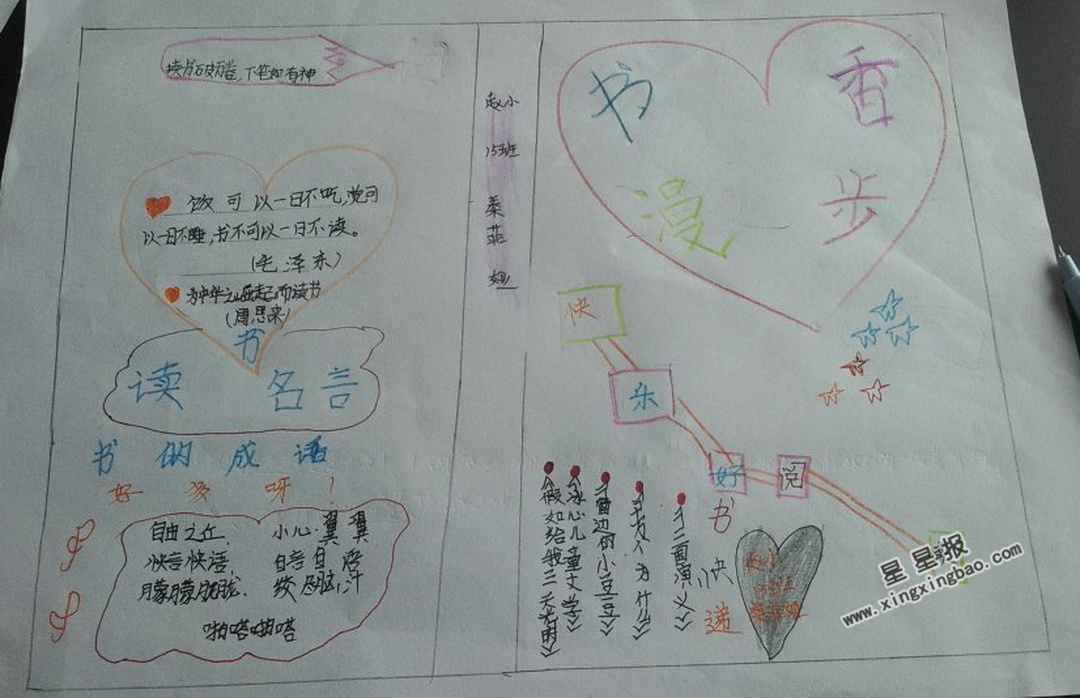 读书破万卷,下笔如有神
饭可以一日不吃,觉可
以一日不睡,书不可以一日不读。
(毛泽东)
为中华之崛起而读书
(周恩来)
读书名言
书的成语
好多呀!
自由之丘
小心翼翼
快言快语
自言自语
朦朦胧胧
绞尽脑汁
啪嗒啪嗒
赵小
152班
书香
漫步
快
乐
好
阅
《假如给我三天光明》
《冰心儿童文学》
《窗边的小豆豆》
《十万个为什么》
《三国演义》
书
快
递
星星报
www.xingxingbao.com